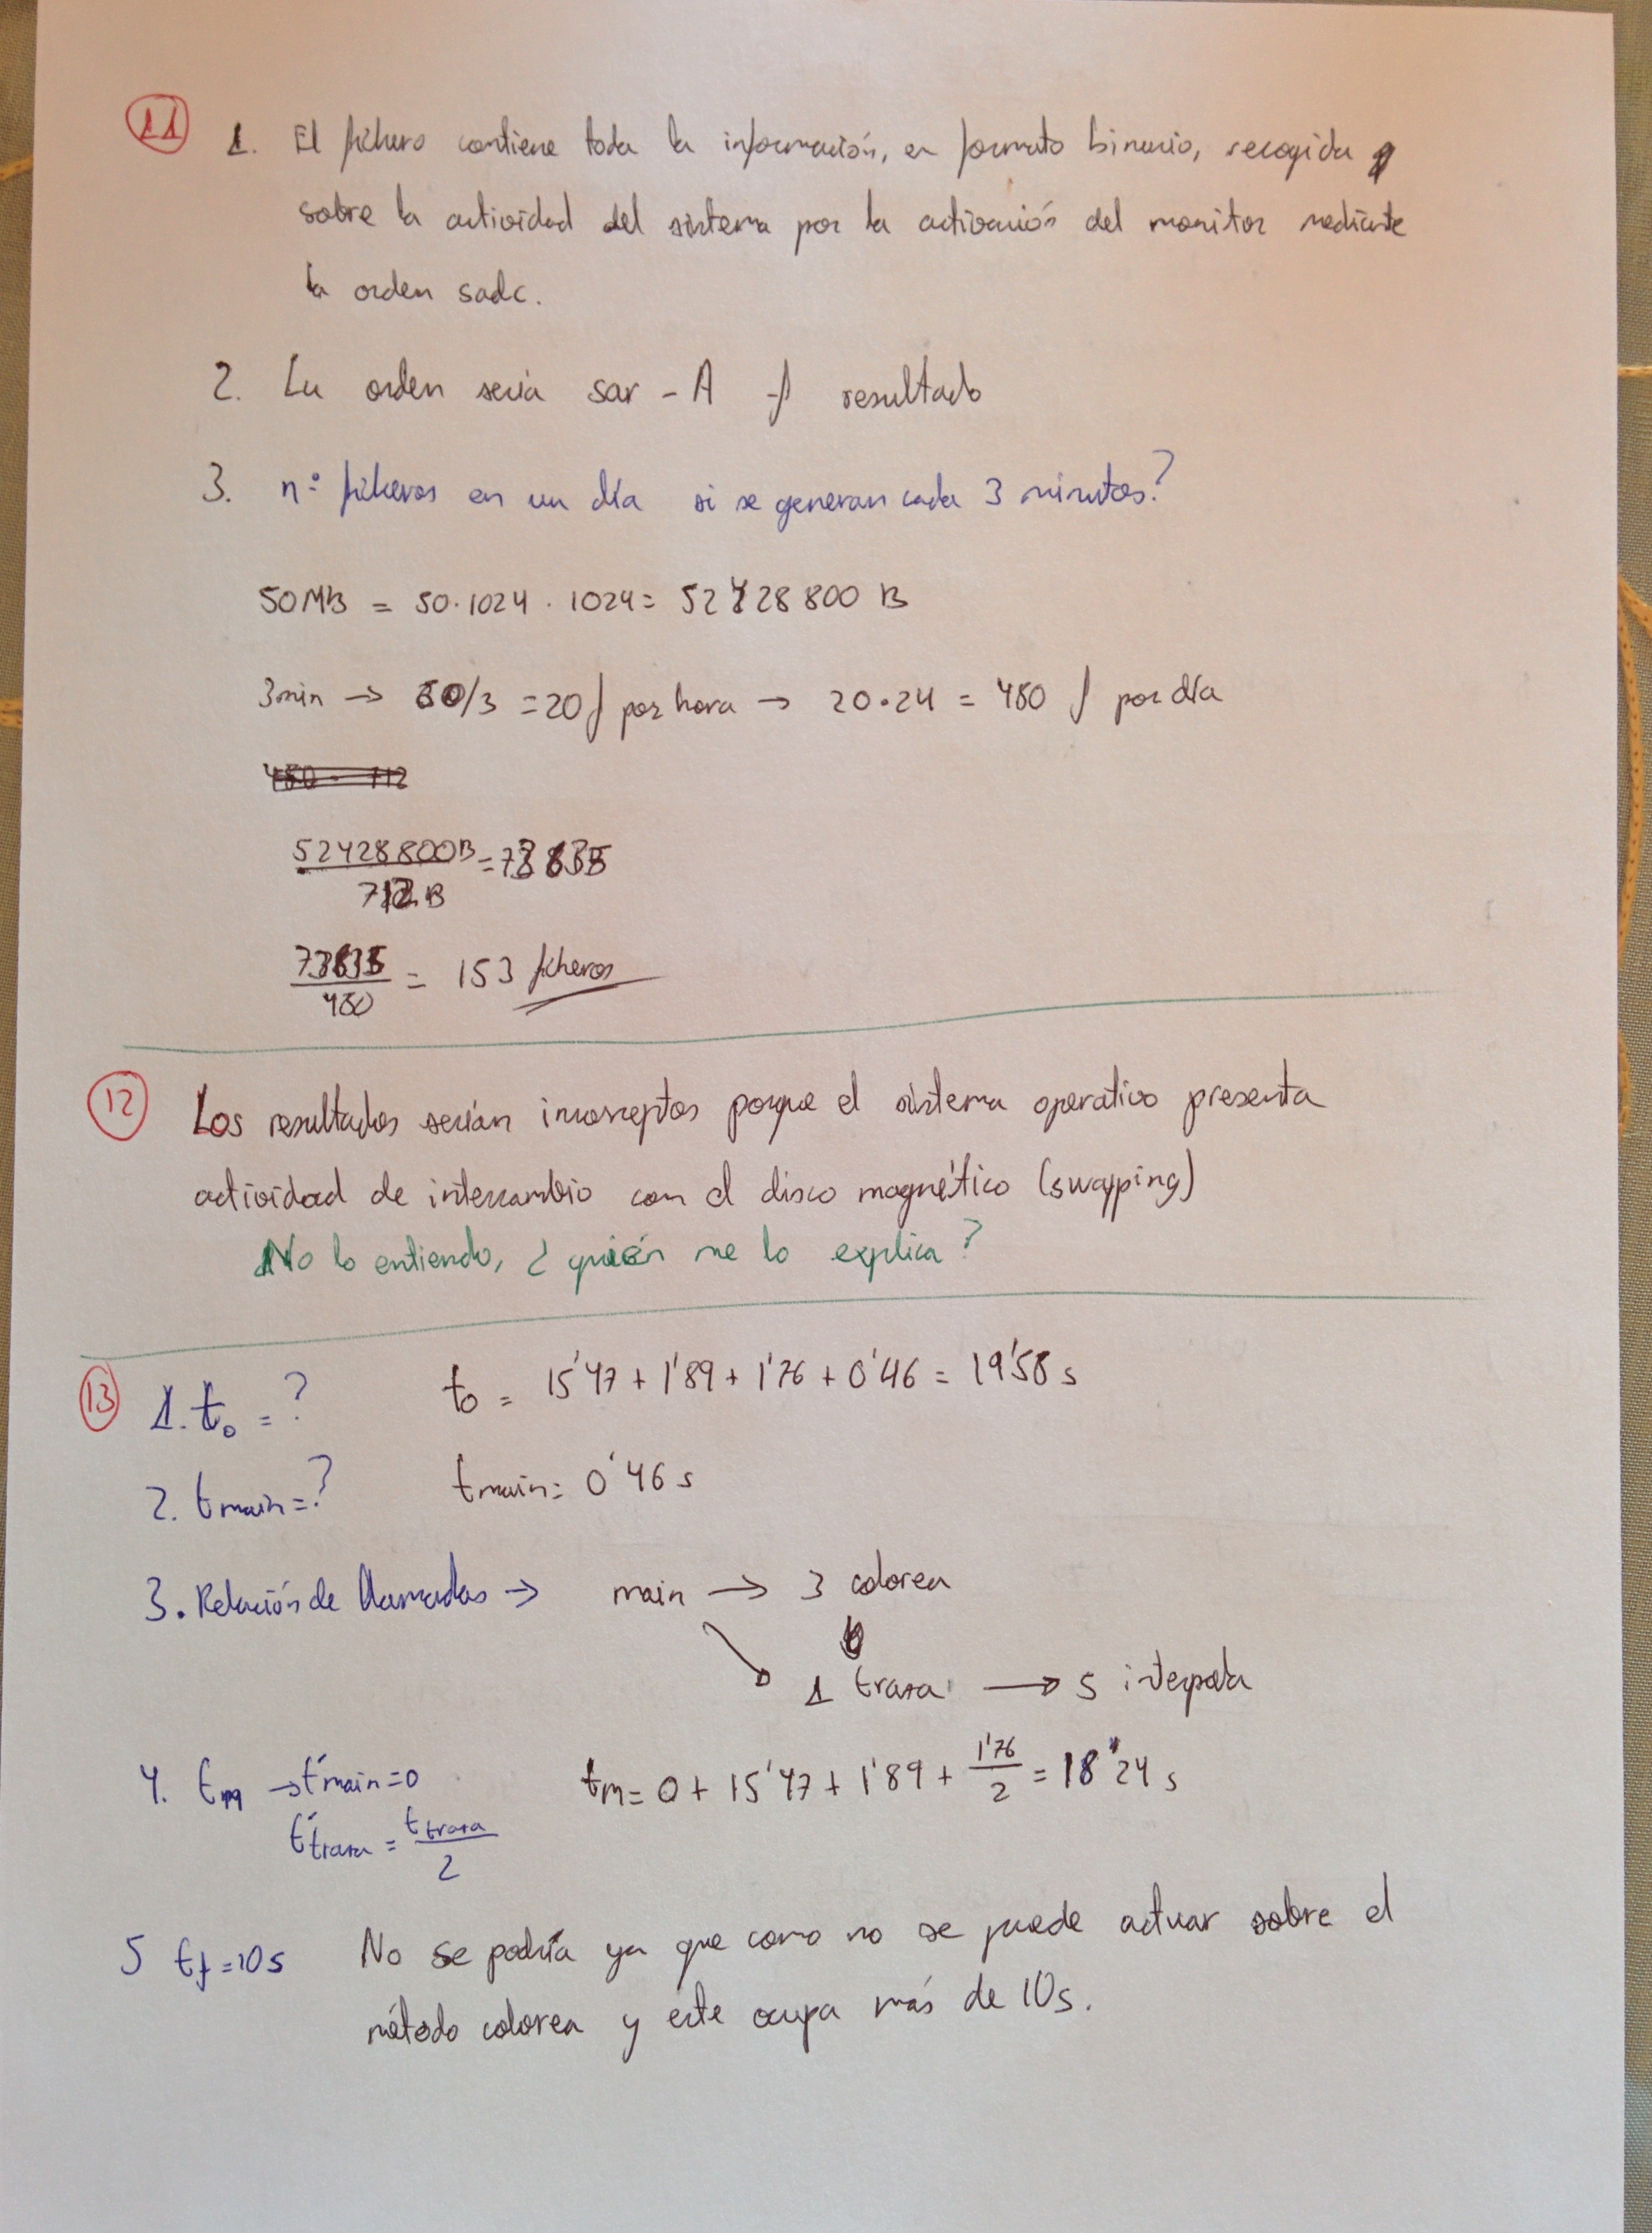 11 1. El fichero contiene toda la información, en formato binario, recogida
sobre la actividad del sistema por la activación del monitor mediante
la orden sadc.
2. La orden sería sar -A -f resultado
3. nº ficheros en un día si se generan cada 3 minutos?
50MB = 50·1024·1024 = 52428800 B
3min → 60/3 = 20 f por hora → 20·24 = 480 f por día
52428800B / 712B =
/ 480 = 153 ficheros
12 Los resultados serían porque el sistema operativo presenta
actividad de intercambio con el disco magnético (swapping)
No lo entiendo, ¿quién me lo explica?
13 1. t₀ = ? t₀ = 15'47 + 1'89 + 1'76 + 0'46 = 19'58 s
2. tmain = ? tmain = 0'46 s
3. Relación de llamadas → main → 3 colorea
1 traza → 5 interpola
4. tm → t'main = 0 tm = 0 + 15'47 + 1'89 + 1'76/2 = 18'24 s
t'traza = ttraza/2
5 tf = 10s No se podría ya que como no se puede actuar sobre el
método colorea y este ocupa más de 10s.